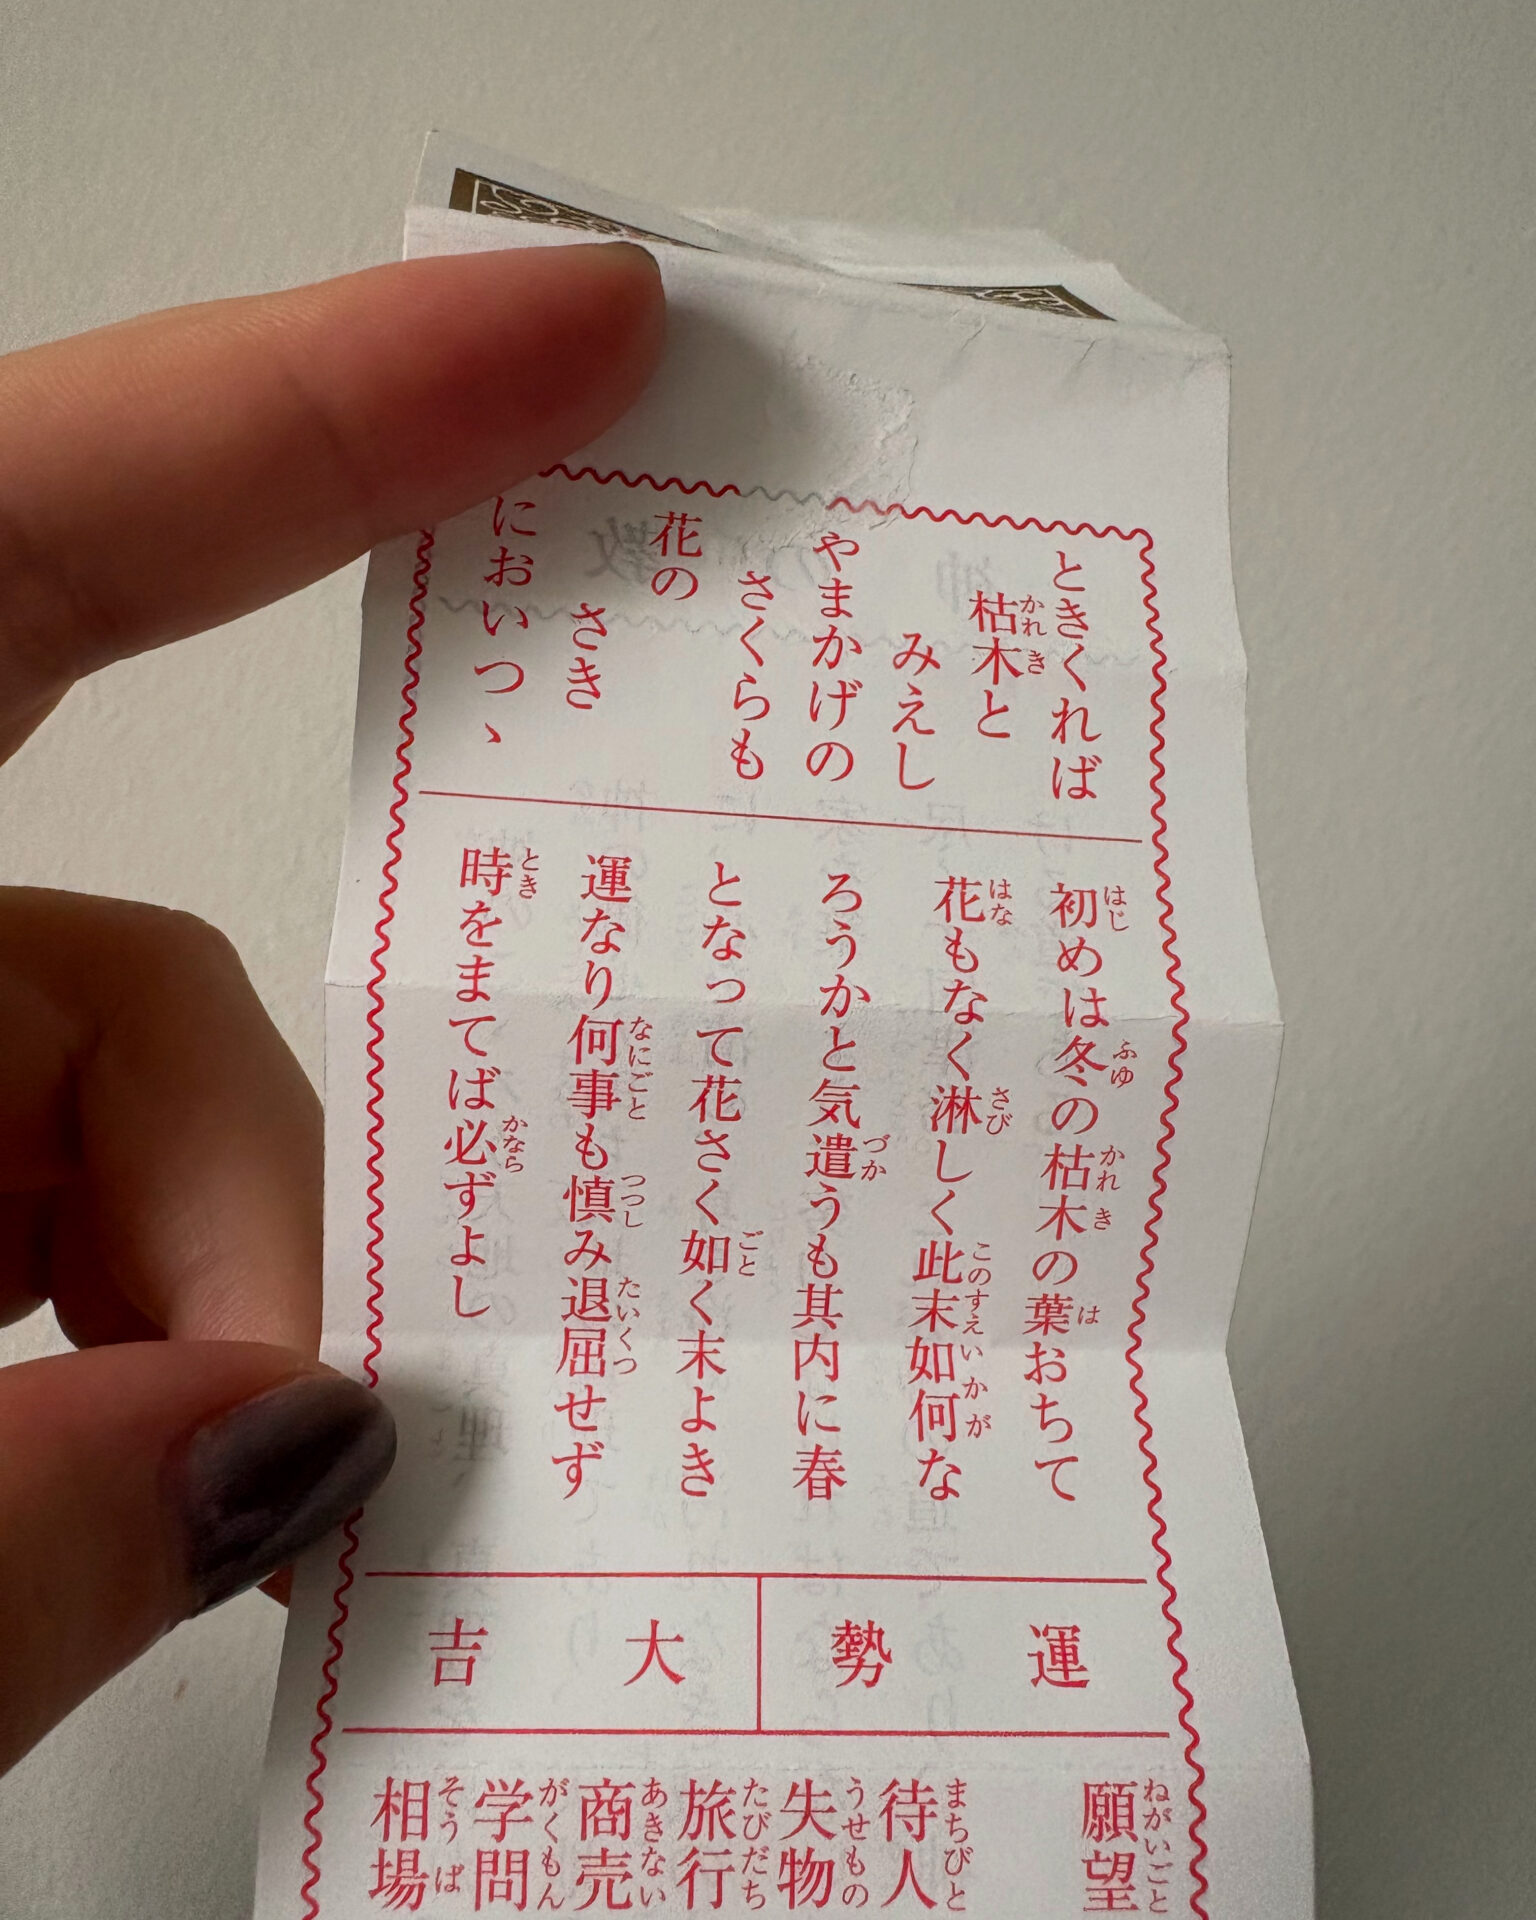 ときくれば
枯木と
みえし
やまかげの
さくらも
花の
さき
においつヽ
初めは冬の枯木の葉おちて
花もなく淋しく此末如何な
ろうかと気遣うも其内に春
となって花さく如く末よき
運なり何事も慎み退屈せず
時をまてば必ずよし
運勢
大吉
願望
待人
失物
旅行
商売
学問
相場